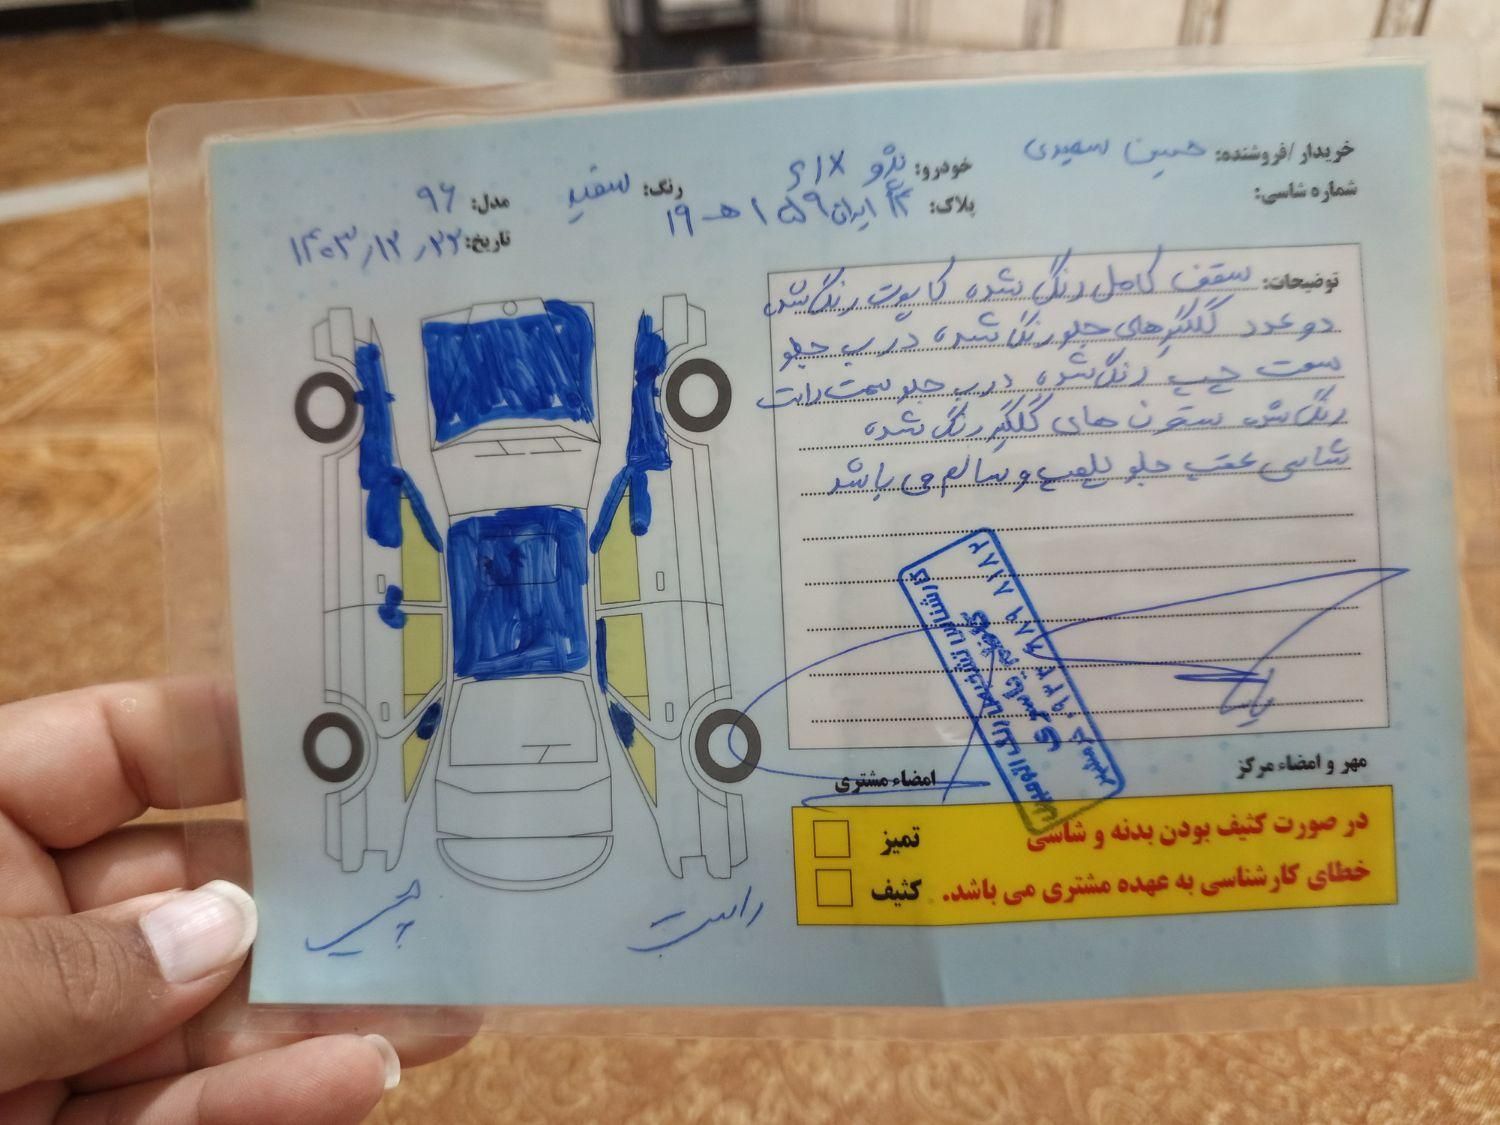 خریدار /فروشنده: حسین سعیدی
خودرو: پژو
رنگ: سفید
مدل: ۹۶
شماره شاسی:
پلاک: ایران
تاریخ: ۱۴۰۳/۱۲/۲۲
توضیحات: سقف کامل رنگ شده کاپوت رنگ شده
دو عدد گلگیرهای جلو رنگ شده درب جلو
سمت چپ رنگ شده درب جلو سمت راست
رنگ شده ستون های گلگیر رنگ شده
شاسی عقب جلو پلمپ و سالم می باشد
کارشناس تشخیص رنگ اتومبیل
مهر و امضاء مرکز
امضاء مشتری
در صورت کثیف بودن بدنه و شاسی
خطای کارشناسی به عهده مشتری می باشد.
تمیز
کثیف
چپ
راست